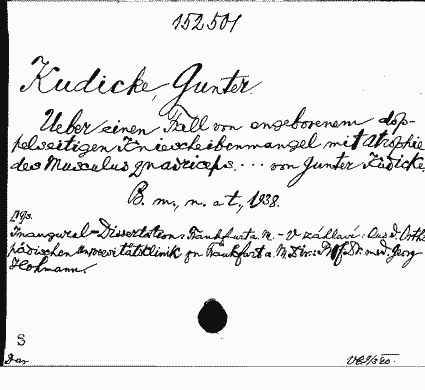 152501
Kudicke, Gunter
Ueber einen Fall von angeborenem dop-
pelseitigen Kniescheibenmangel mit Atrophie
des Musculus quadriceps.... von Gunter Kudicke.
B. m., n. a t., 1938.
Inaugural-Dissertation: Frankfurt a. M. - V záhlaví: Aus d. Ortho
pädischen Universitätsklinik in Frankfurt a. M. Dir.: Prof. Dr. med. Georg
Hohmann.
S
Dar